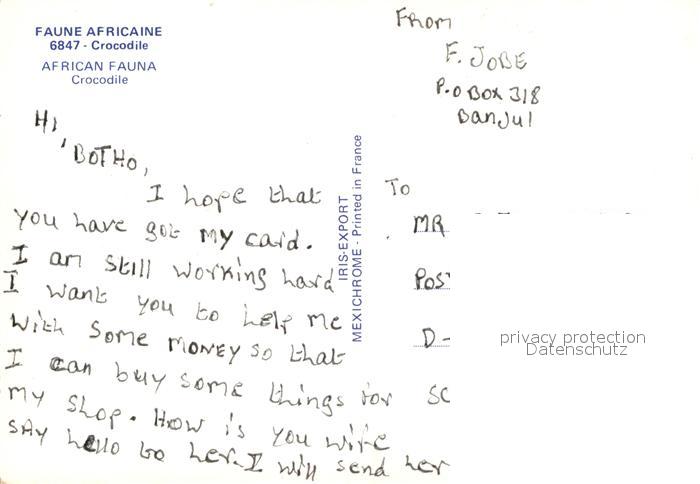 FAUNE AFRICAINE
6847 - Crocodile
AFRICAN FAUNA
Crocodile
Hi,
BOTHO,
I hope that
you have got MY card.
I am still working hard
I want you to help me
with some MONEY so that
I can buy some things for
my shop. How is you wife
SAY hello to her. I will send her
IRIS-EXPORT
MEXICHROME - Printed in France
FROM
F. JOBE
P.O BOX 318
Banjul
To
MR
POS
D-
SC
privacy protection
Datenschutz